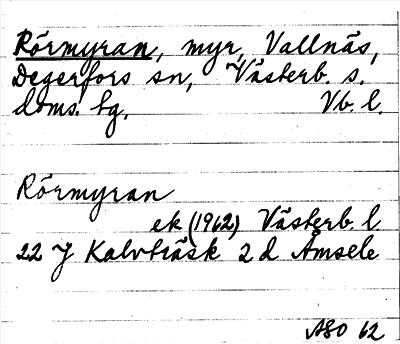 Rörmyran, myr, Vallnäs,
Degerfors sn, Västerb. s.
doms. tg. Vb. l.
Rörmyran
ek (1962) Västerb. l
22 J Kalvträsk 2 d Åmsele
ASO 62